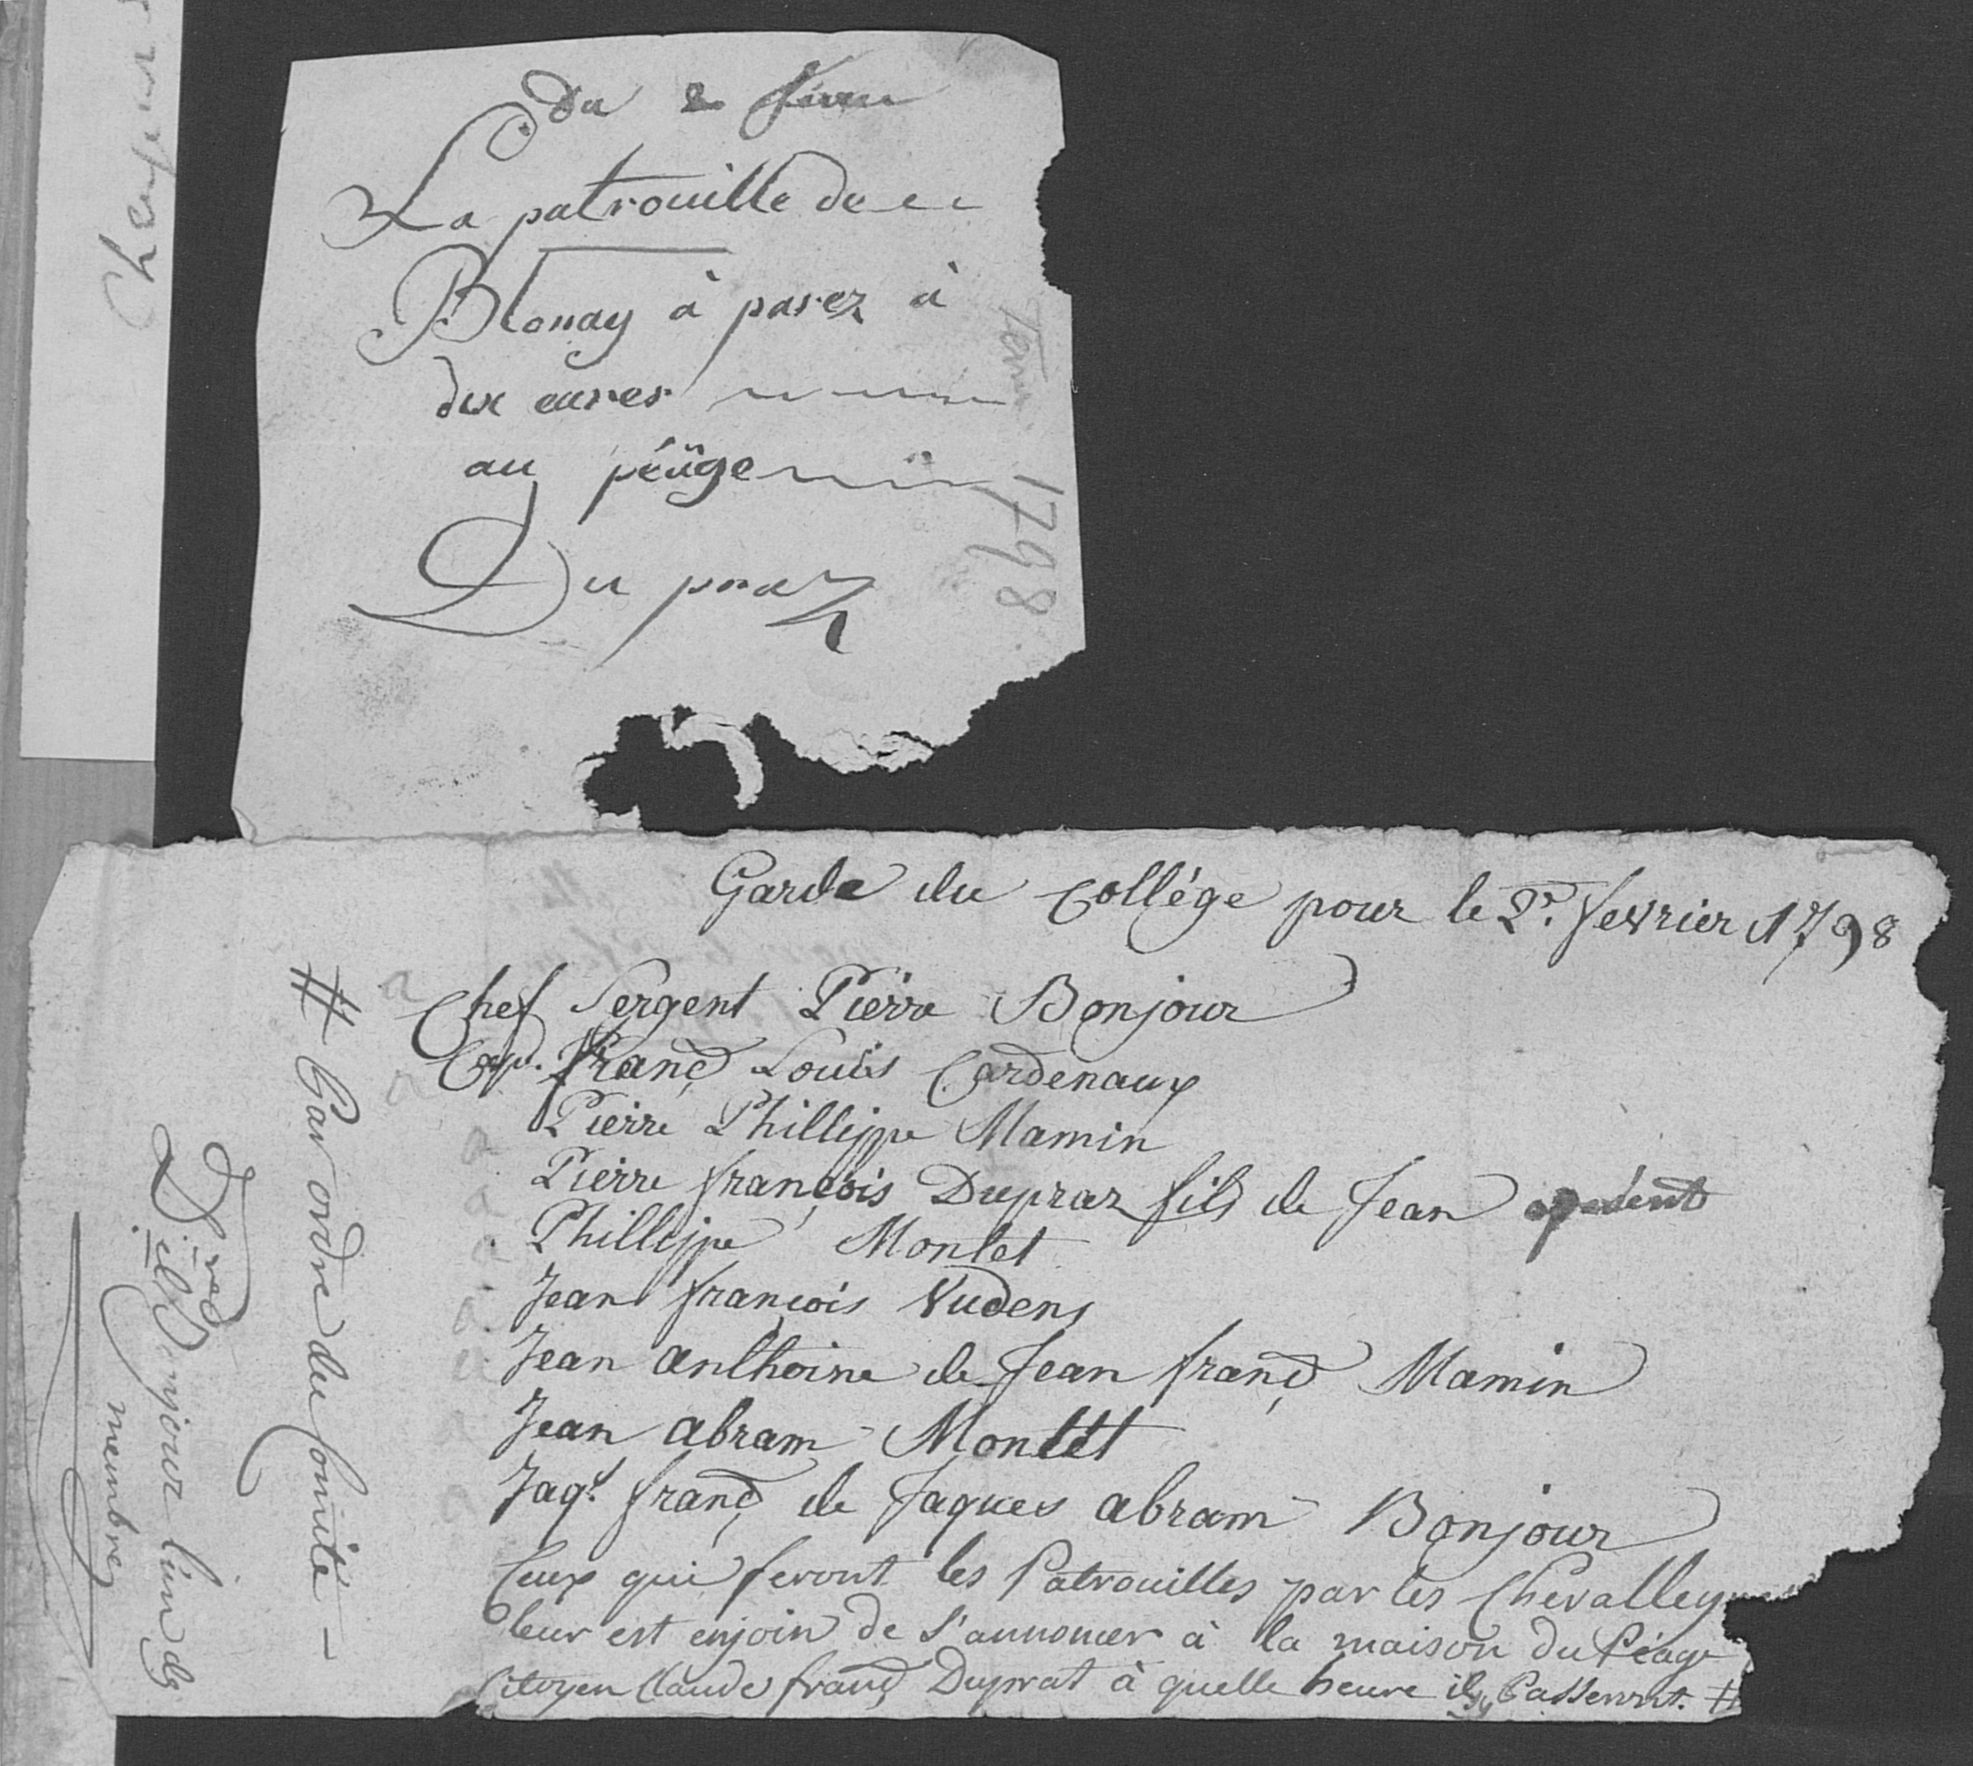 Du 2
La patrouille de
Blonay à pasez à
dix eures
au péüge
Du praz
1798
Garde du Collége pour le 2e. fevrier 1798
Chef Sergent Pierre Bonjour
Cap. franç Louis Cardenaux
Pierre Phillippe Mamin
Pierre françois Dupraz fils de Jean
Phillippe Montet
Jean françois Vudens
Jean anthoine de Jean franç Mamin
Jean abram Montet
Jaqs. franç de Jaques abram Bonjour
Ceux qui feront les Patrouilles par les Chevalley
leur est enjoin de s'annoncer à la maison du Péage
Citoyen Claude franç Duprat à quelle heure ils Passeront. #
# Par ordre du Comité
Bonjour l'un des
membres